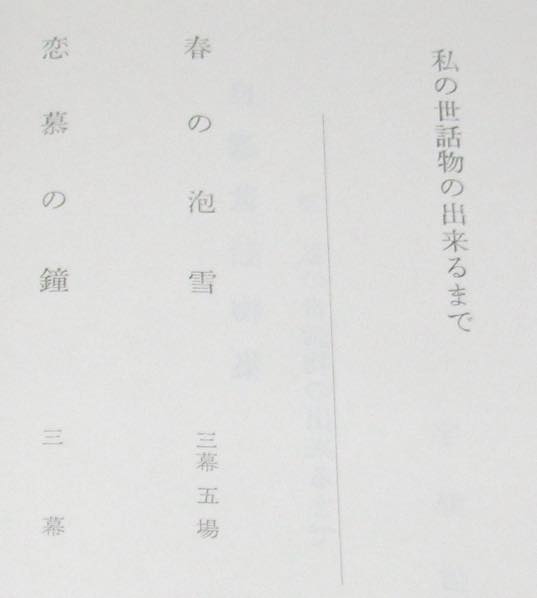 私の世話物の出来るまで
春の泡雪 三幕五場
恋慕の鐘 三幕